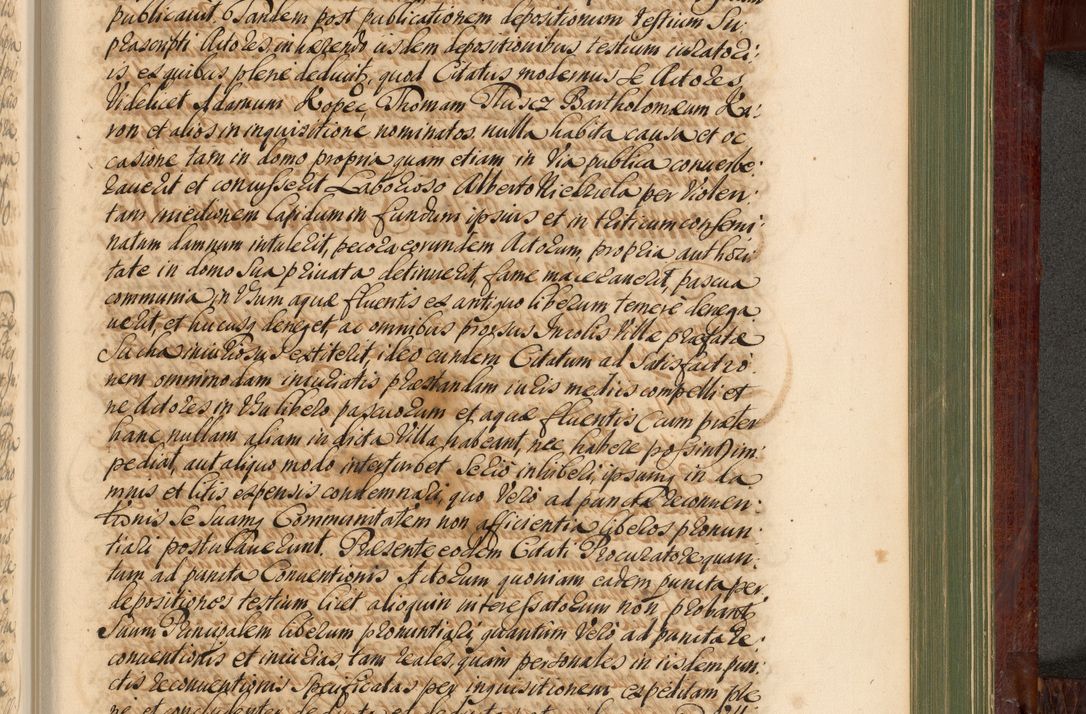 publicavit, Tandem post publicationem depositionum testium Su-
prascripti Actores, inhærendo iisdem depositionibus testium iuratori-
is, ex quibus plene deducit, quod Citatus modernus se Actores
Videlicet Adamum Kopeć, Thomam Tłuscz Bartholomæum Ka-
ron et alios in inquisitione nominatos, nulla habita causa et oc-
casione tam in domo propria quam etiam in Via publica converbe-
raverit et concusserit Laborioso Alberto Niedziela per Violen-
tam iniectionem lapidum in fundum ipsius et in triticum consemi-
natum damnum intulerit, pecora eorundem Actorum, propria authori-
tate in domo sua privata detinuerit, fame maceraverit, pascua
communia, in Usum aquæ fluentis ex antiquo liberum temere denega-
verit, et hucusq deneget, ac omnibus prorsus Incolis Villæ præfatæ
Sucha iniuriosus extiterit, ideo eundem Citatum ad Satisfactio-
nem omnimodam iniuriatis præstandam iuris mediis compelli et
ne Actores in Usu libero pascuorum et aquæ fluentis (cum præter
hanc nullam aliam in dicta Villa habeant, nec habere possint) im-
pediat, aut aliquo modo interturbet serio inhiberi, ipsumq in da-
mnis et litis expensis condemnari, quo Vero ad puncta reconven-
tionis se suamq Communitatem non afficientia liberos pronun-
tiari postulaverunt. Præsente eodem Citati Procuratore quan-
tum ad puncta Conventionis Actorum quoniam eadem puncta per
depositiones testium, licet alioquin interessatorum non probant
suum Principalem liberum pronuntiari, quantum Vero ad puncta re-
conventionis et iniurias, tam reales, quam personales in iisdem pun-
ctis reconventionis specificatas per inquisitionem expeditam ple-